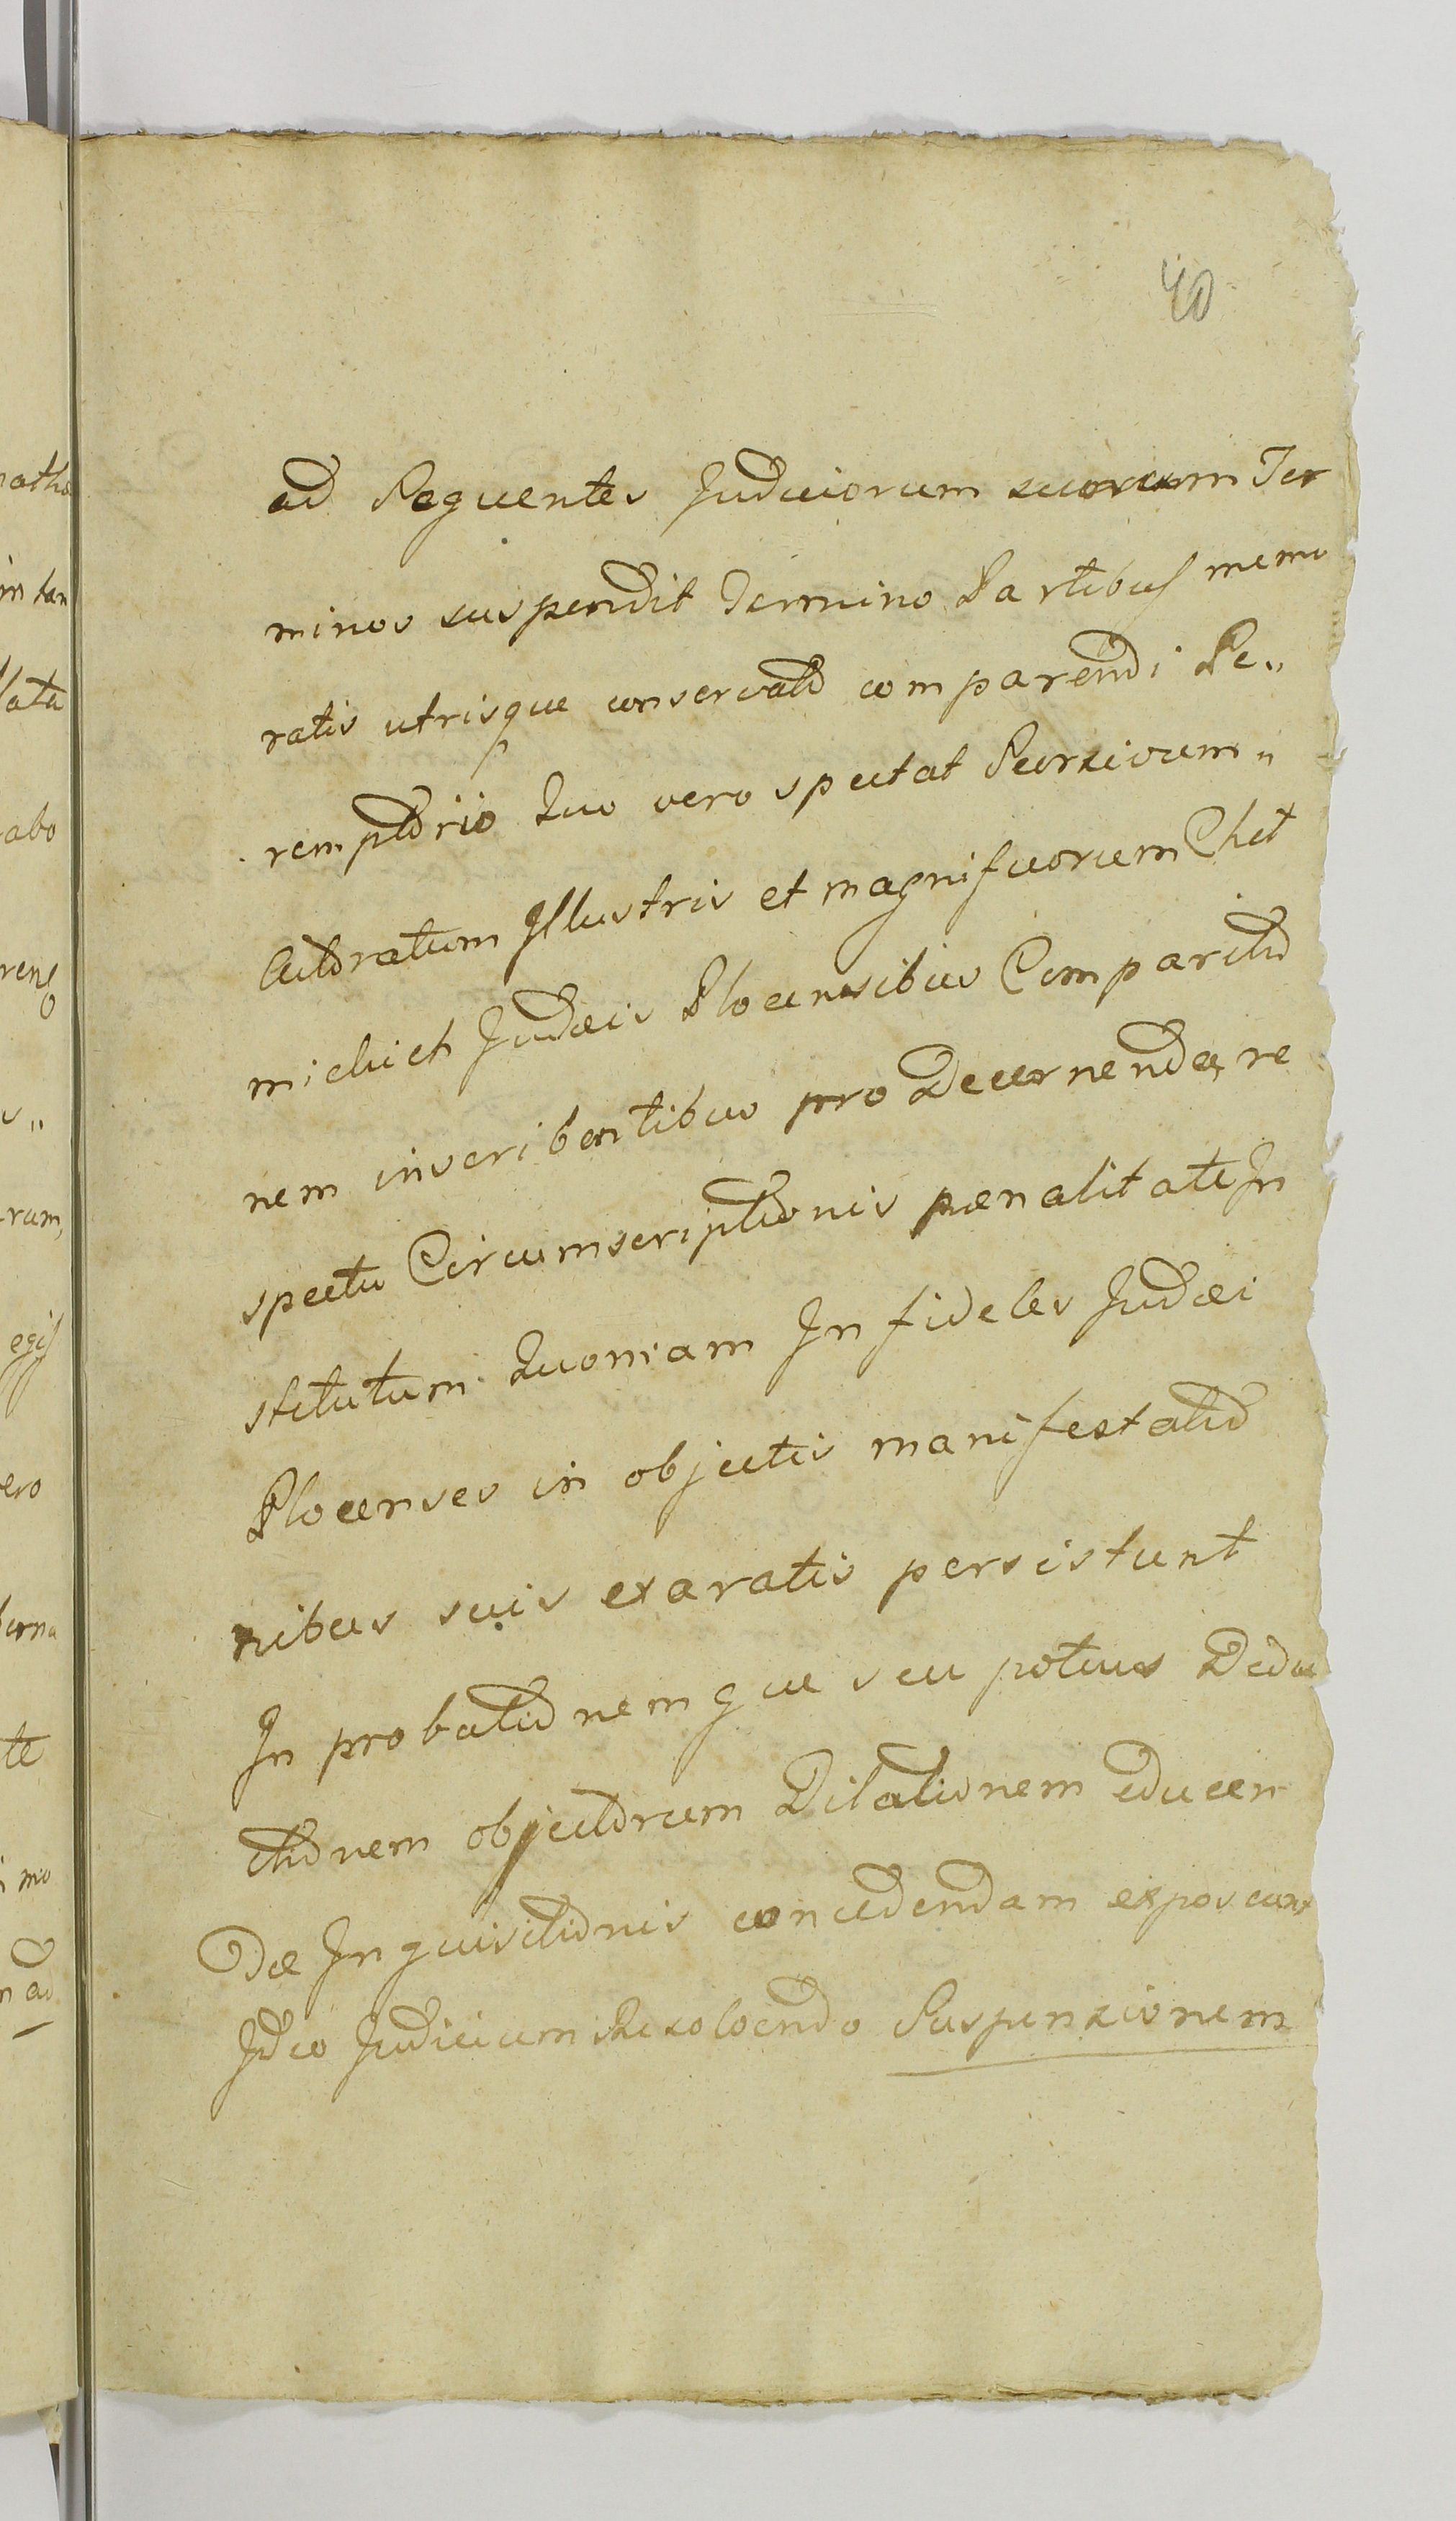 40
ad Sequentes Judiciorum suorum Ter
minos suspendit Termino Partibus memo
ratis utrisque conservato comparendi Pe„
remptorio Quo vero spectat Recursivum„
Actoratum Illustris et magnificorum Chet
michich Judæis Plocensibus Comparitio
nem inscribentibus pro Decernenda re
spectu Circumscriptionis pænalitate In
stitutum. Quoniam Infideles Judæi
Plocenses in objectis manifestatio
nibus suis exaratis persistunt
In probationemque seu potius Dedu
ctionem objectorum Dilationem educen
dæ Inquisitionis concedendam exposcunt
Ideo Judicium Resolvendo Suspensionem